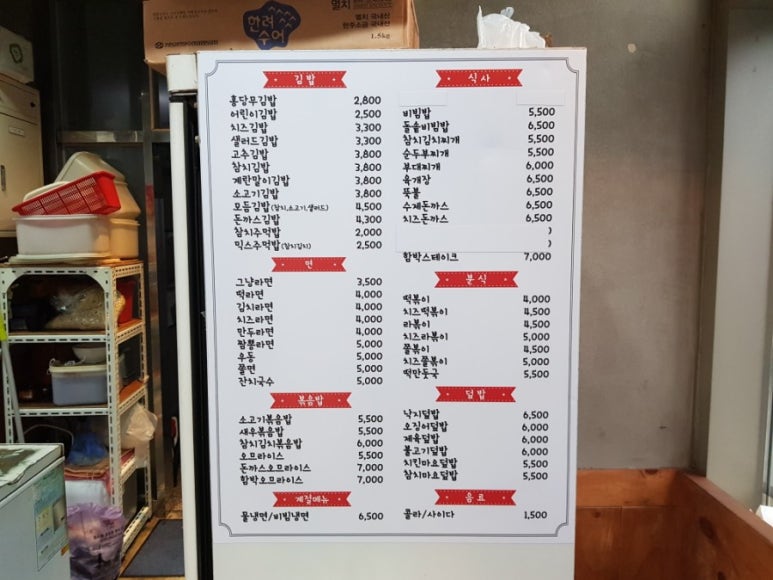 한려
수어
멸치
멸치 국내산
천주소금 국내산
1.5kg
김밥
홍당무김밥 2,800
어린이김밥 2,500
치즈김밥 3,300
샐러드김밥 3,300
고추김밥 3,800
참치김밥 3,800
계란말이김밥 3,800
소고기김밥 3,800
모듬김밥(참치,소고기,샐러드) 4,500
돈까스김밥 4,300
참치주먹밥 2,000
믹스주먹밥(참치김치) 2,500
면
그냥라면 3,500
떡라면 4,000
김치라면 4,000
치즈라면 4,000
만두라면 4,000
짬뽕라면 5,000
우동 5,000
쫄면 5,000
잔치국수 5,000
볶음밥
소고기볶음밥 5,500
새우볶음밥 5,500
참치김치볶음밥 6,000
오므라이스 5,500
돈까스오므라이스 7,000
함박오므라이스 7,000
계절메뉴
물냉면/비빔냉면 6,500
식사
비빔밥 5,500
돌솥비빔밥 6,500
참치김치찌개 5,500
순두부찌개 5,500
부대찌개 6,000
육개장 6,500
뚝불 6,500
수제돈까스 6,500
치즈돈까스 6,500
함박스테이크 7,000
분식
떡볶이 4,000
치즈떡볶이 4,500
라볶이 4,500
치즈라볶이 5,000
쫄볶이 4,500
치즈쫄볶이 5,000
떡만둣국 5,500
덮밥
낙지덮밥 6,500
오징어덮밥 6,000
제육덮밥 6,000
불고기덮밥 6,000
치킨마요덮밥 5,500
참치마요덮밥 5,500
음료
콜라/사이다 1,500